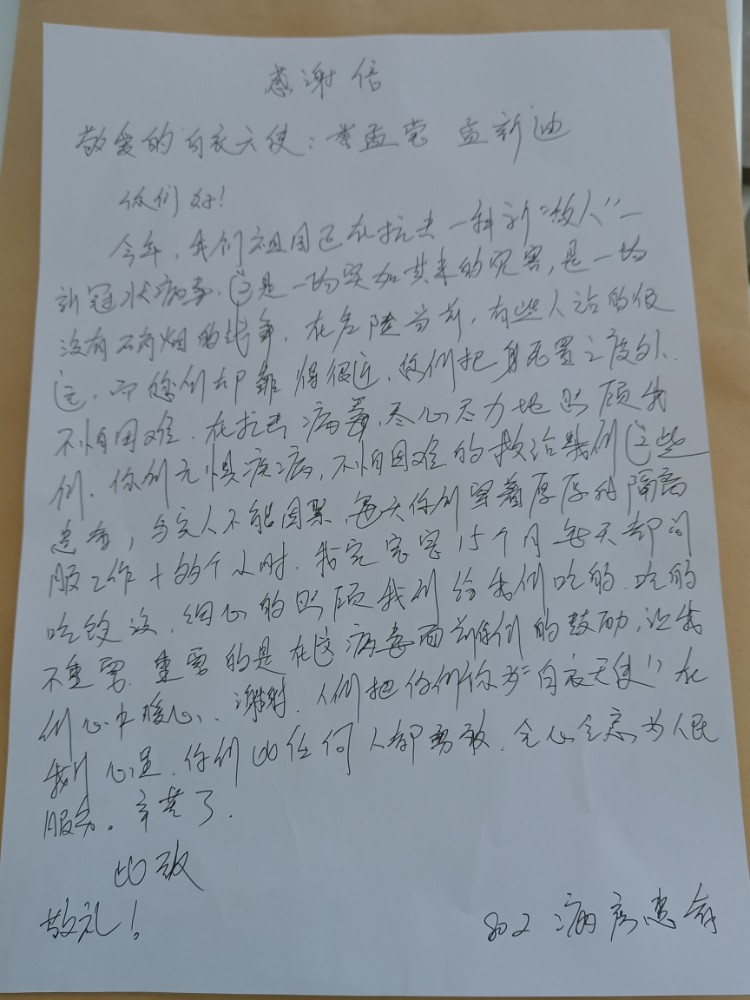 感谢信
敬爱的白衣天使：黄孟莹 孟新迪
你们好！
今年，我们祖国正在抗击一种新“敌人”一
新冠状病毒。这是一场突如其来的灾害，是一场
没有硝烟的战争，在危险当前，有些人站的很
远，而您们却靠得很近，你们把身死置之度外、
不怕困难．在抗击病毒，尽心尽力地照顾我
们．你们无惧疾病，不怕困难的救治我们这些
患者，与家人不能团聚，每天你们穿着厚厚的隔离
服工作十多个小时．我宝宝15个月每天都问
吃饭没，细心的照顾我们给我们吃的．吃的
不重要．重要的是在这病毒面前你们的鼓励，让我
们心中暖心．谢谢．人们把你们作为“白衣天使”在
我们心里．你们比任何人都勇敢．全心全意为人民
服务。辛苦了．
此致
敬礼！
802 病房患者